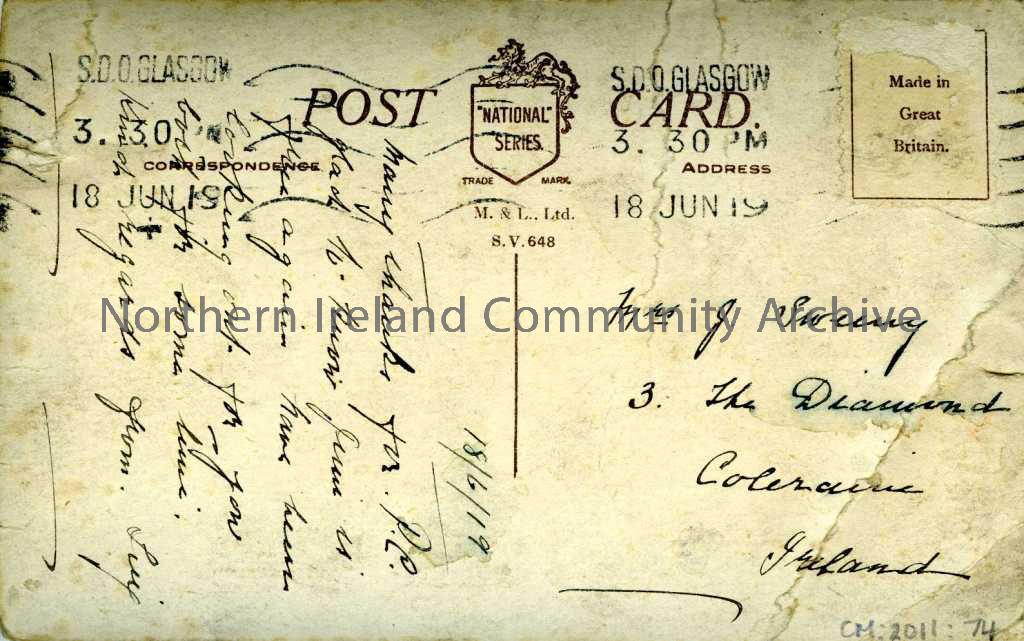 S.D.O. GLASGOW
3. 30 PM
18 JUN 19
POST CARD.
"NATIONAL"
SERIES.
TRADE MARK.
M. & L., Ltd.
S.V. 648
CORRESPONDENCE
ADDRESS
S.D.O. GLASGOW
3. 30 PM
18 JUN 19
Made in
Great
Britain.
18/6/19
Many thanks for. P.C.
glad to know is
again have been
looking out. for you
both for some time.
Kind regards from.
Mrs J Sweeny
3. The Diamond
Coleraine
Ireland
Northern Ireland Community Archive
CM:2011:74